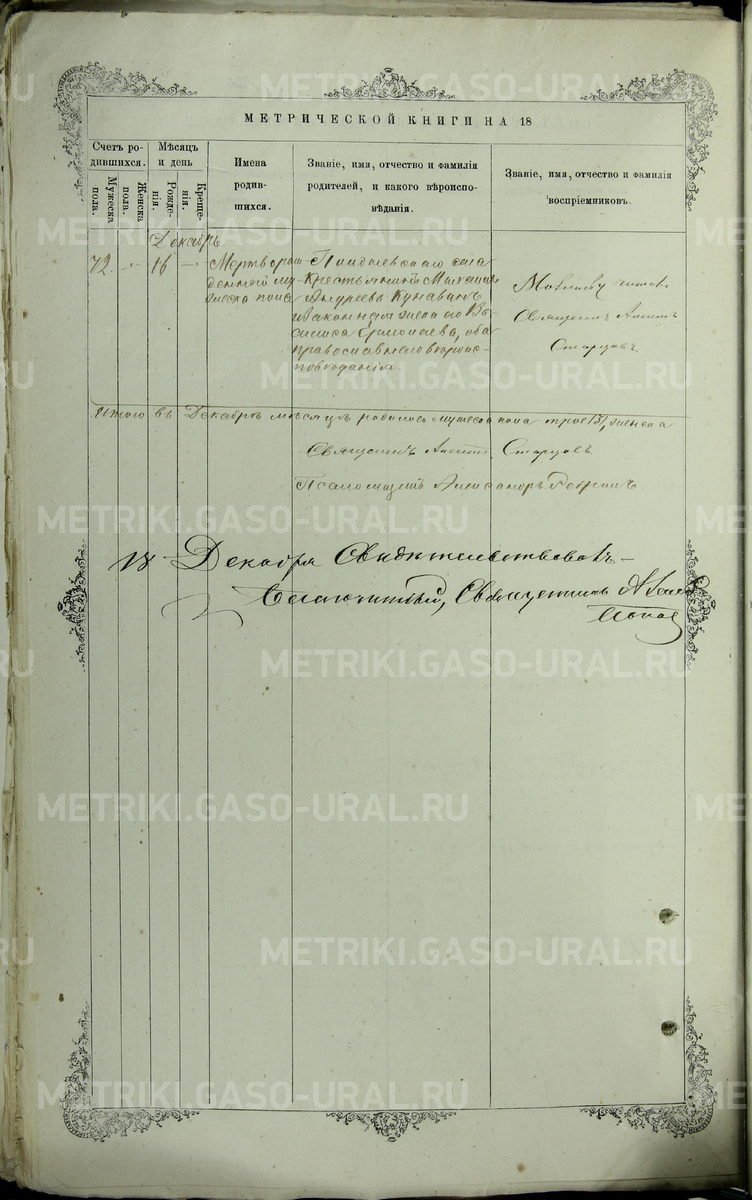 METRIKI.GASO-URAL.RU
МЕТРИЧЕСКОЙ КНИГИ НА 18
Счетъ ро-
дившихся.
Мужеска
пола.
Женска
пола.
Мѣсяцъ
и день
Рожде-
нія.
Креще-
нія.
Имена
родив-
шихся.
Званіе, имя, отчество и фамилія
родителей, и какого вѣроиспо-
вѣданія.
Званіе, имя, отчество и фамилія
воспріемниковъ.
Декабрь
72. 16
Мертворож
денный му
жеска пола
села
Крестьянинъ Михаилъ
Андреевъ Кунавинъ
и законная жена его Ва
силиса Ермолаева, оба
православнаго вѣроис-
повѣданія.
Молитву читалъ
Священникъ
Старцовъ
Итого въ Декабрѣ мѣсяцѣ родилось мужеска пола трое /3/, женска
Священникъ Старцовъ
Псаломщикъ Александръ
18 Декабря Свидѣтельствовалъ
Благочинный, Священникъ А.
Поповъ